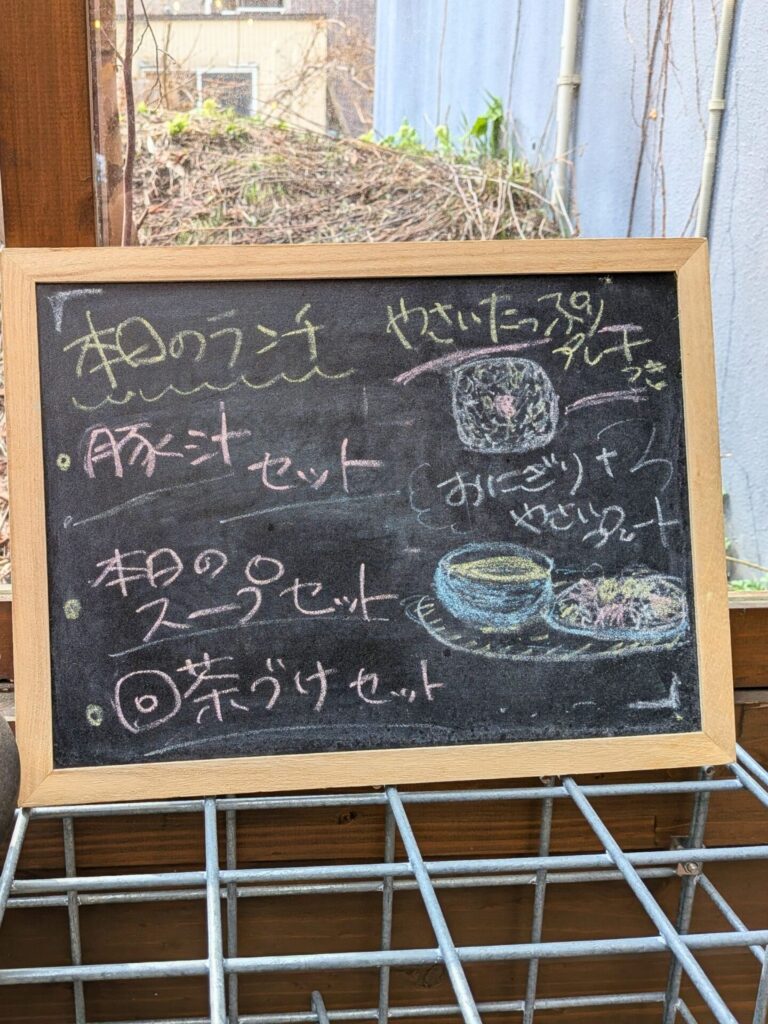 本日のランチ
豚汁
セット
本日の
スープセット
茶づけセット
やさいたっぷり
プレート
つき
おにぎり+
やさいプレート